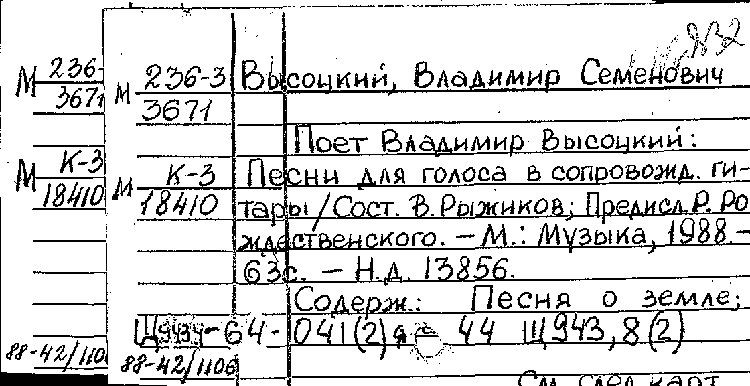 М 236-
3671
М К-3
18410
88-42/1106
932
М 236-3 Высоцкий, Владимир Семенович
3671
Поет Владимир Высоцкий:
М К-3 Песни для голоса в сопровожд. ги-
18410 тары/Сост. В.Рыжиков; Предисл. Р. Ро
ждественского. – М.: Музыка, 1988.–
63с. – Н.д. 13856.
Содерж.: Песня о земле;
Щ943-64-041(2) 44 Щ943,8(2)
88-42/1106
См. след. карт.